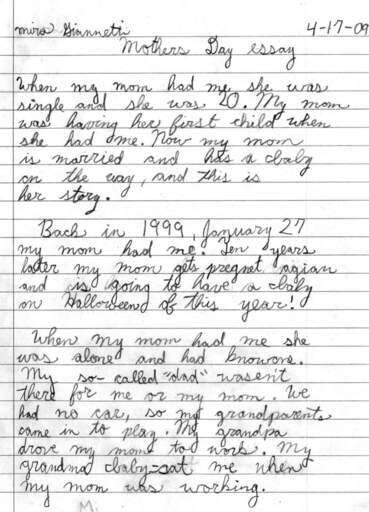 mira Giannetti 4-17-09
Mothers Day essay
When my mom had me, she was
single and she was 20. My mom
was having her first child when
she had me. Now my mom
is married and has a baby
on the way, and this is
her story.
Back in 1999, January 27
my mom had me. Ten years
later my mom gets pregnet agian
and is going to have a baby
on Halloween of this year!
When my mom had me she
was alone and had knowone.
My so-called "dad" wasen't
there for me or my mom. We
had no car, so my grandparents
came in to play. My grandpa
drove my mom to work. My
grandma baby-sat me when
my mom was working.
M.